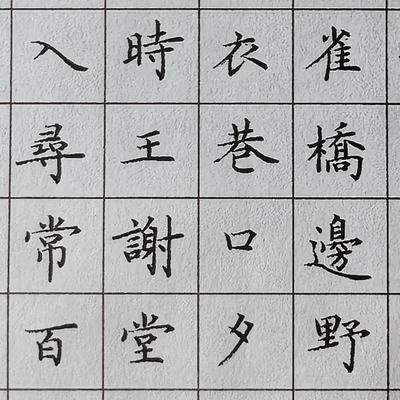 雀橋邊野
衣巷口夕
時王謝堂
入尋常百